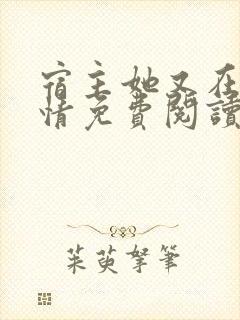 宿主她又在
情免費閱讀
茱萸拏筆